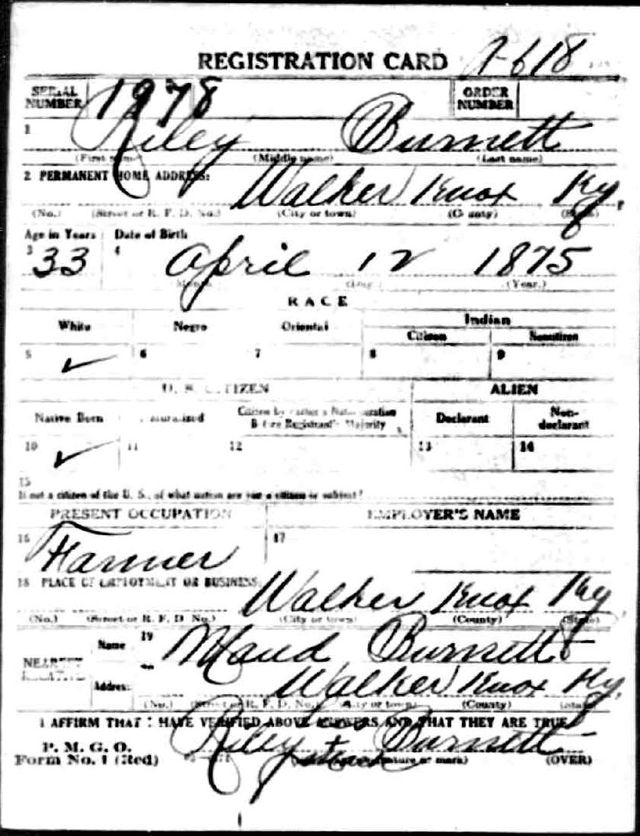 REGISTRATION CARD A-618
SERIAL NUMBER 1978 ORDER NUMBER
1 Riley Burnett
(First name) (Middle name) (Last name)
2 PERMANENT HOME ADDRESS: Walker Knox Ky.
(No.) (Street or R. F. D. No.) (City or town) (County) (State)
Age in Years Date of Birth
3 33 4 April 12 1875
(Month.) (Day.) (Year.)
RACE
White Negro Oriental Indian
Citizen Noncitizen
5 ✓ 6 7 8 9
U. S. CITIZEN ALIEN
Native Born Naturalized Citizen by Father's Naturalization Before Registrant's Majority Declarant Non-declarant
10 ✓ 11 12 13 14
15
If not a citizen of the U. S., of what nation are you a citizen or subject?
PRESENT OCCUPATION EMPLOYER'S NAME
16 Farmer 17
18 PLACE OF EMPLOYMENT OR BUSINESS: Walker Knox Ky
(No.) (Street or R. F. D. No.) (City or town) (County) (State)
NEAREST RELATIVE Name 19 Maud Burnett
Address 20 Walker Knox Ky.
(No.) (Street or R. F. D. No.) (City or town) (County) (State)
I AFFIRM THAT I HAVE VERIFIED ABOVE ANSWERS AND THAT THEY ARE TRUE
P. M. G. O.
Form No. 1 (Red) Riley + Burnett
(Registrant's signature or mark) (OVER)